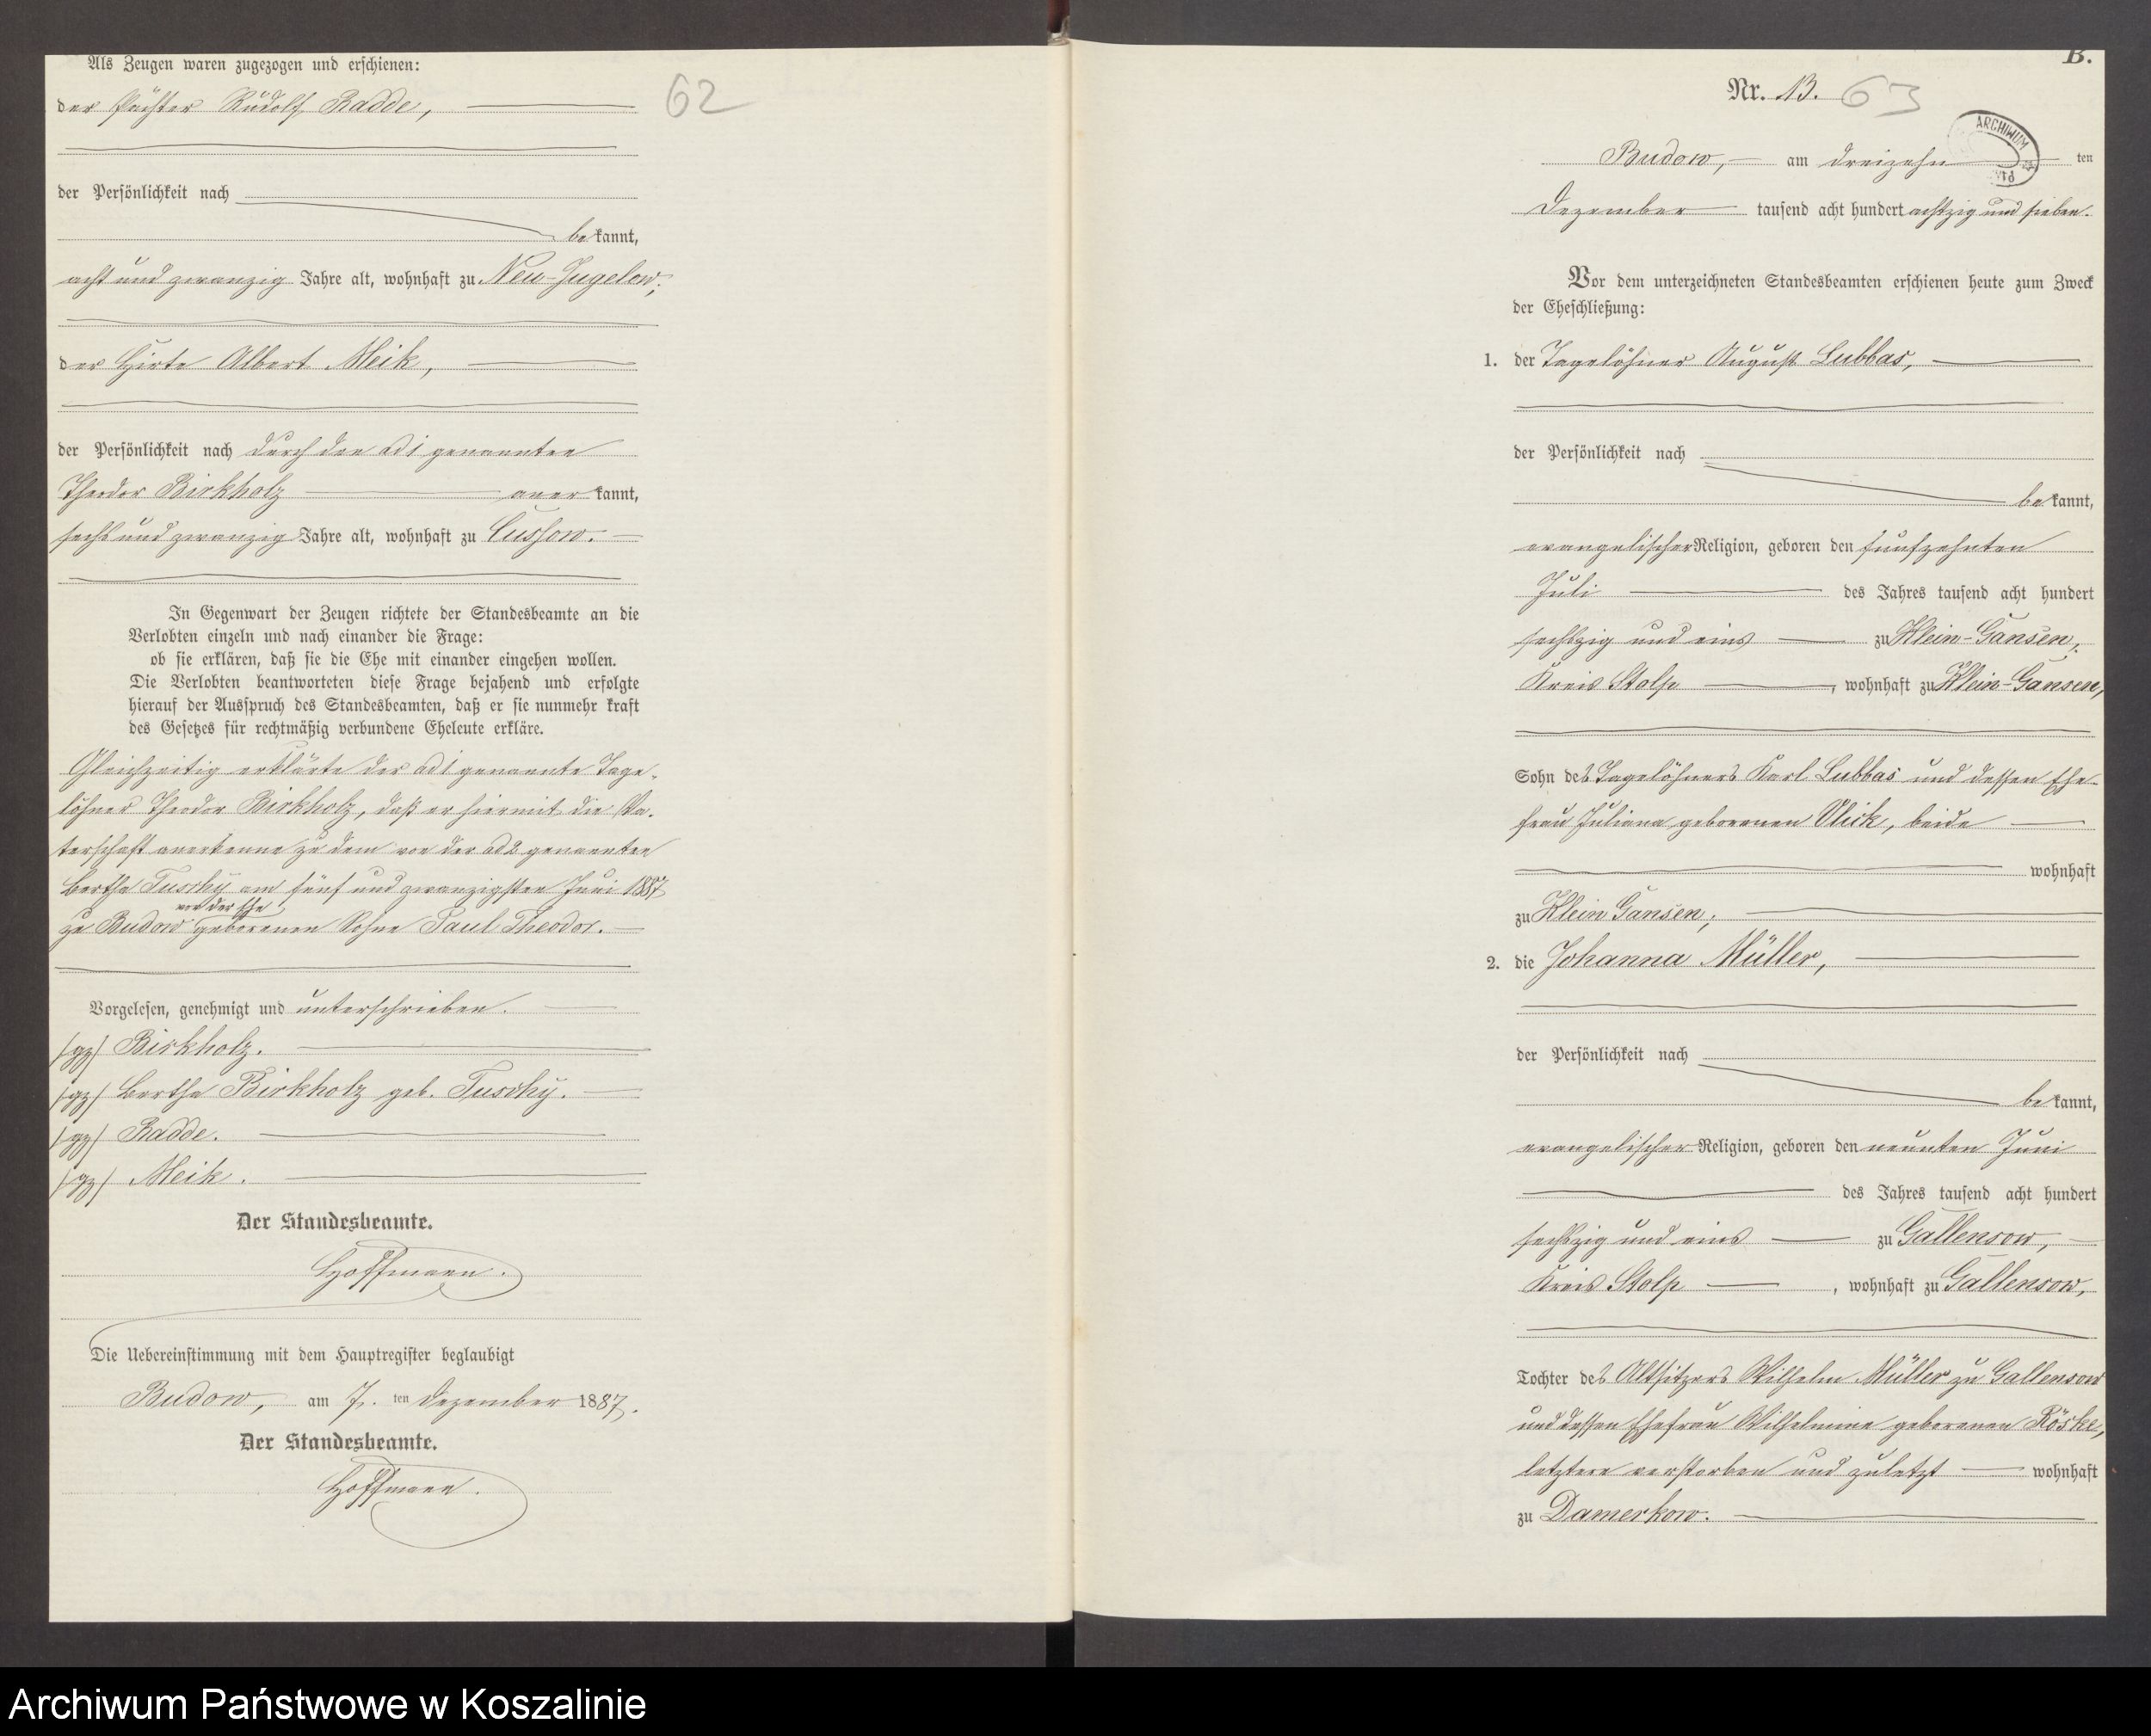 Als Zeugen waren zugezogen und erschienen:
der Pächter Rudolf Radde,
62
der Persönlichkeit nach
be kannt,
acht und zwanzig Jahre alt, wohnhaft zu Neu-Jugelow;
der Hirte Albert Meik,
der Persönlichkeit nach durch den ad 1 genannten
Theodor Birkholz anerkannt,
sechs und zwanzig Jahre alt, wohnhaft zu Cussow.
In Gegenwart der Zeugen richtete der Standesbeamte an die
Verlobten einzeln und nach einander die Frage:
ob sie erklären, daß sie die Ehe mit einander eingehen wollen.
Die Verlobten beantworteten diese Frage bejahend und erfolgte
hierauf der Ausspruch des Standesbeamten, daß er sie nunmehr kraft
des Gesetzes für rechtmäßig verbundene Eheleute erkläre.
Gleichzeitig erklärte der ad 1 genannte Tage-
löhner Theodor Birkholz, daß er hiermit die Va-
terschaft anerkenne zu dem von der ad 2 genannten
Bertha Tuschy am fünf und zwanzigsten Juni 1887
vor der Ehe
zu Budow geborenen Sohne Paul Theodor.
Vorgelesen, genehmigt und unterschrieben.
/gz/ Birkholz.
/gz/ Bertha Birkholz geb. Tuschy.
/gz/ Radde.
/gz/ Meik.
Der Standesbeamte.
Hoffmann.
Die Uebereinstimmung mit dem Hauptregister beglaubigt
Budow, am 7. ten Dezember 1887.
Der Standesbeamte.
Hoffmann.
B.
Nr. 13. 63
ARCHIWUM
Budow, am dreizehn ten
Dezember tausend acht hundert achtzig und sieben.
Vor dem unterzeichneten Standesbeamten erschienen heute zum Zweck
der Eheschließung:
1. der Tagelöhner August Lubbas,
der Persönlichkeit nach
be kannt,
evangelischer Religion, geboren den fünfzehnten
Juli des Jahres tausend acht hundert
sechszig und eins zu Klein-Gansen,
Kreis Stolp, wohnhaft zu Klein-Gansen,
Sohn des Tagelöhners Karl Lubbas und dessen Ehe-
frau Juliana geborenen Ulick, beide
wohnhaft
zu Klein Gansen;
2. die Johanna Müller,
der Persönlichkeit nach
be kannt,
evangelischer Religion, geboren den neunten Juni
des Jahres tausend acht hundert
sechszig und eins zu Gallensow,
Kreis Stolp, wohnhaft zu Gallensow,
Tochter des Altsitzers Wilhelm Müller zu Gallensow
und dessen Ehefrau Wilhelmine geborenen Röske,
letztere verstorben und zuletzt wohnhaft
zu Damerkow.
Archiwum Państwowe w Koszalinie